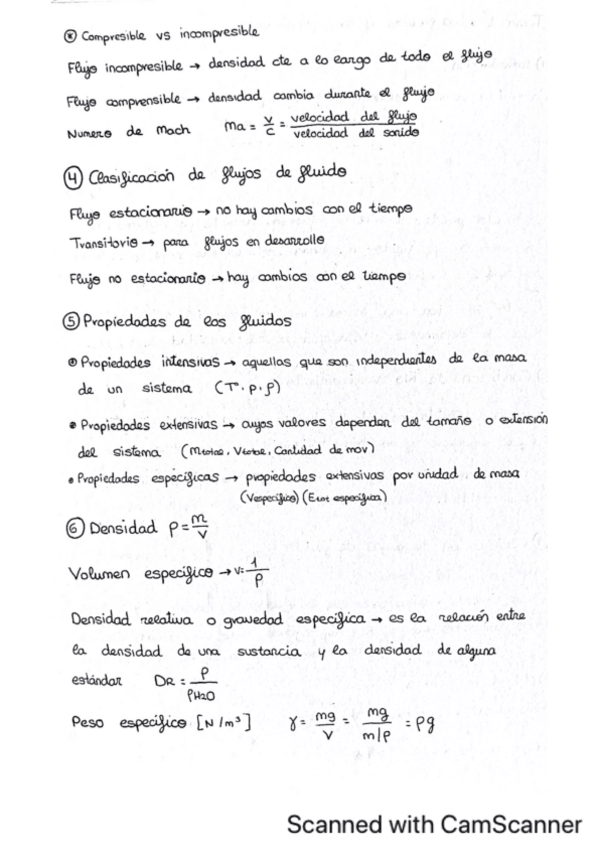 ⊗ Compresible vs incompresible
Flujo incompresible → densidad cte a lo largo de todo el flujo
Flujo comprensible → densidad cambia durante el flujo
Numero de Mach Ma = V/c = velocidad del flujo/velocidad del sonido
④ Clasificación de flujos de fluido
Flujo estacionario → no hay cambios con el tiempo
Transitorio → para flujos en desarrollo
Flujo no estacionario → hay cambios con el tiempo
⑤ Propiedades de los fluidos
• Propiedades intensivas → aquellas que son independientes de la masa
de un sistema (Tª, p, ρ)
• Propiedades extensivas → cuyos valores dependen del tamaño o extensión
del sistema (Mtotal, Vtotal, Cantidad de mov)
• Propiedades específicas → propiedades extensivas por unidad de masa
(Vespecífico) (Eint específica)
⑥ Densidad ρ = m/V
Volumen específico → v = 1/ρ
Densidad relativa o gravedad específica → es la relación entre
la densidad de una sustancia y la densidad de alguna
estándar DR = ρ/ρH2O
Peso específico [N/m³] γ = mg/V = mg/m/ρ = ρg
Scanned with CamScanner